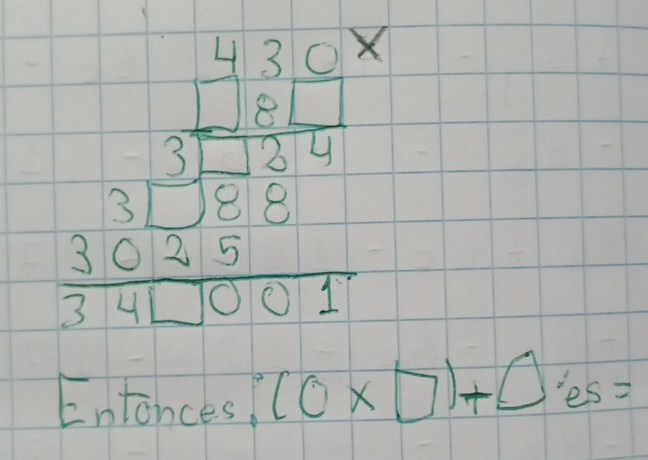 4 3 0 ×
□ 8 □
3 □ 2 4
3 □ 8 8
3 0 2 5
3 4 □ 0 0 1
Entonces: (0 × □) + △ es =